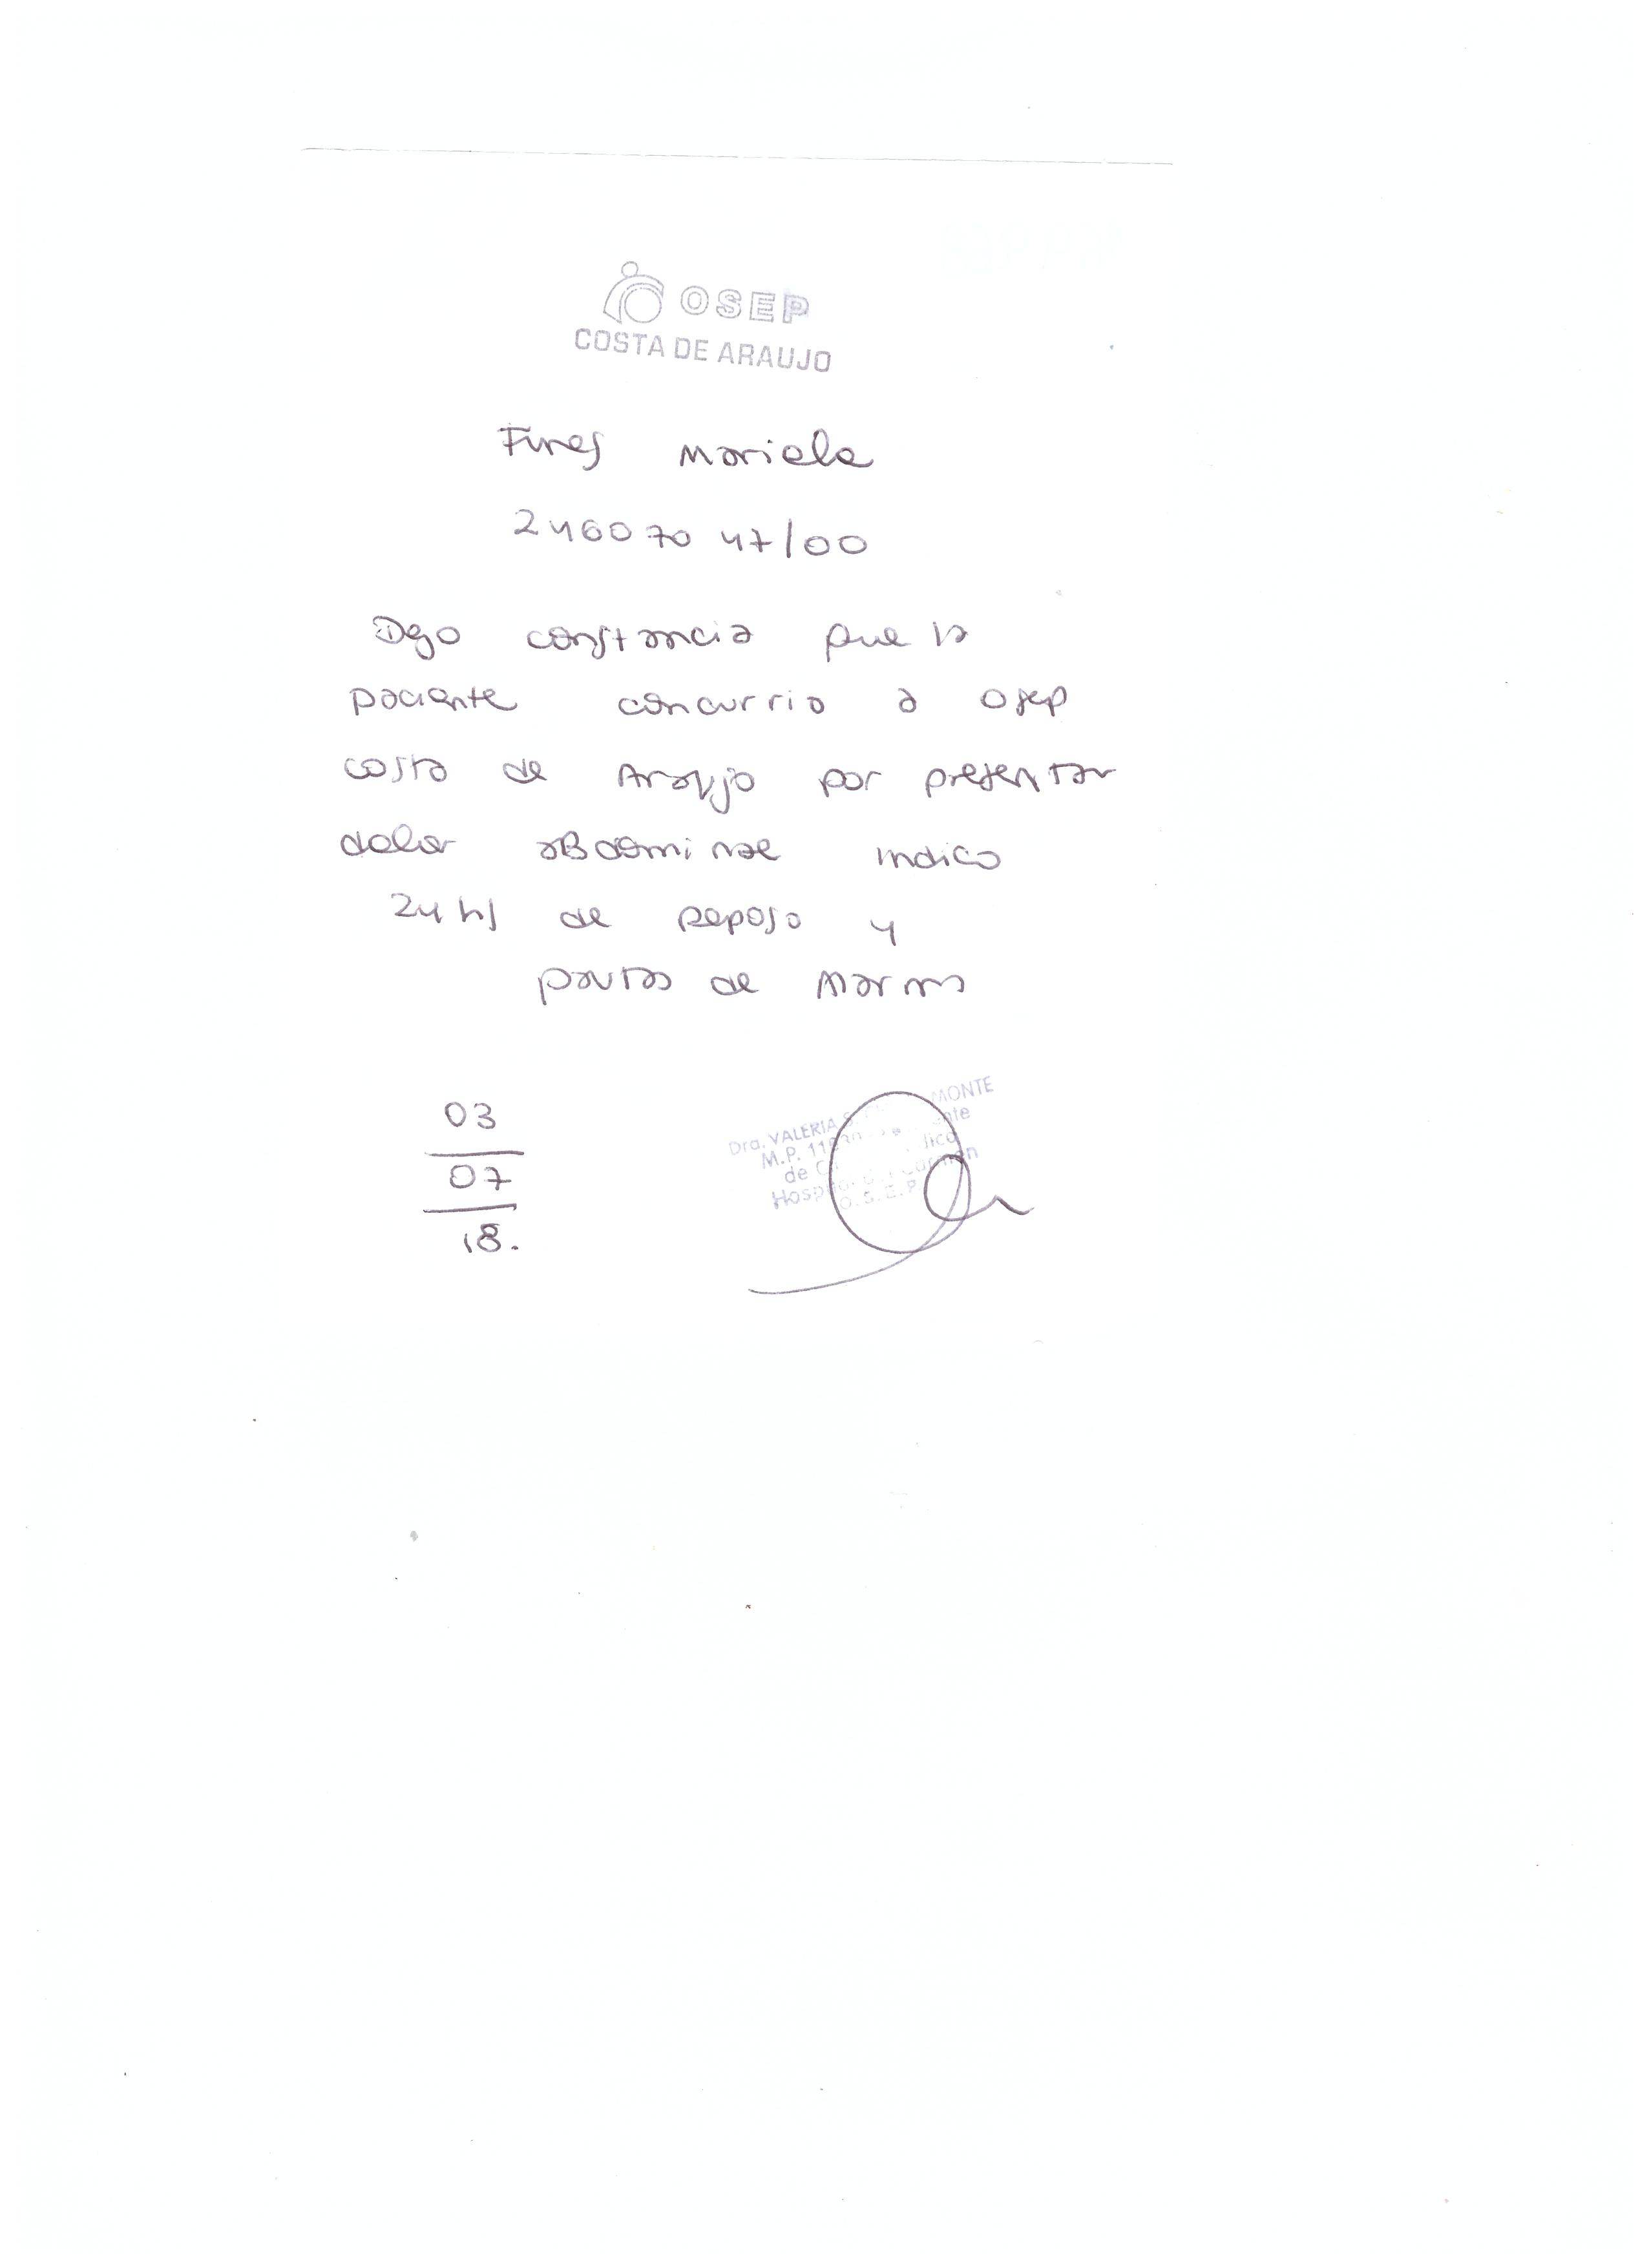 OSEP
COSTA DE ARAUJO
Funes Mariela
24607047/00
Dejo constancia que la
paciente concurrio a Osep
costa de Araujo por presentar
dolor abdominal indico
24 hs de reposo y
pautas de Alarma
03
07
18.
Dra. VALERIA MONTE
M.P.
de
O.S.E.P